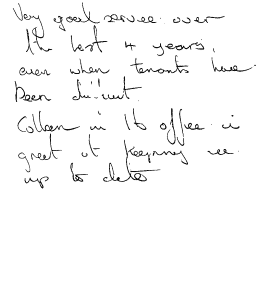 Very good service over
the last 4 years,
even when tenants have
been difficult.
Colleen in the office is
great at keeping me
up to date